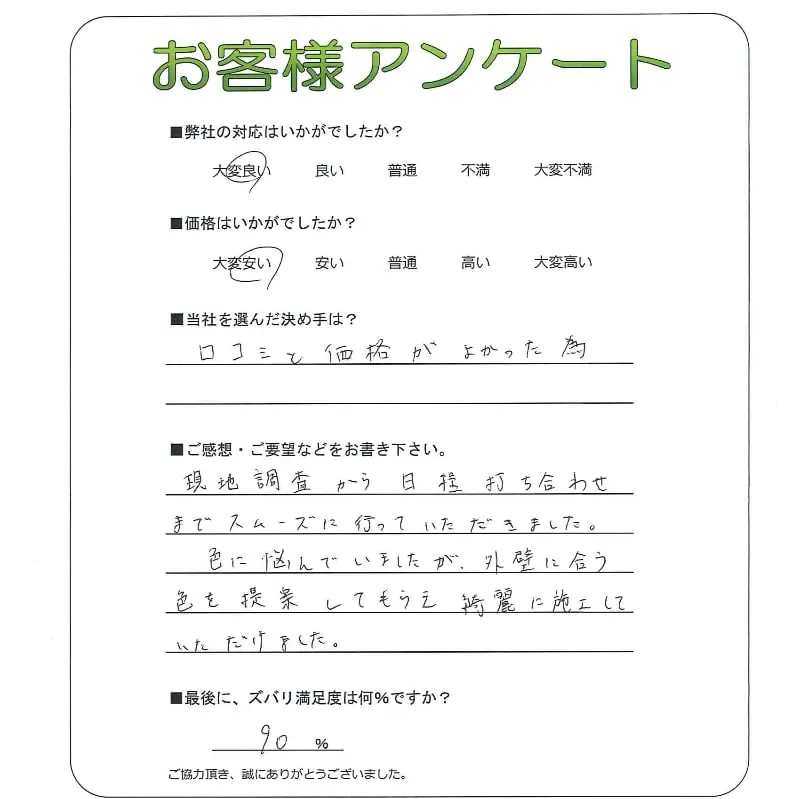 お客様アンケート
■弊社の対応はいかがでしたか？
大変良い 良い 普通 不満 大変不満
■価格はいかがでしたか？
大変安い 安い 普通 高い 大変高い
■当社を選んだ決め手は？
口コミと価格がよかった為
■ご感想・ご要望などをお書き下さい。
現地調査から日程打ち合わせ
までスムーズに行っていただきました。
色に悩んでいましたが、外壁に合う
色を提案してもらえ綺麗に施工して
いただけました。
■最後に、ズバリ満足度は何%ですか？
90 %
ご協力頂き、誠にありがとうございました。